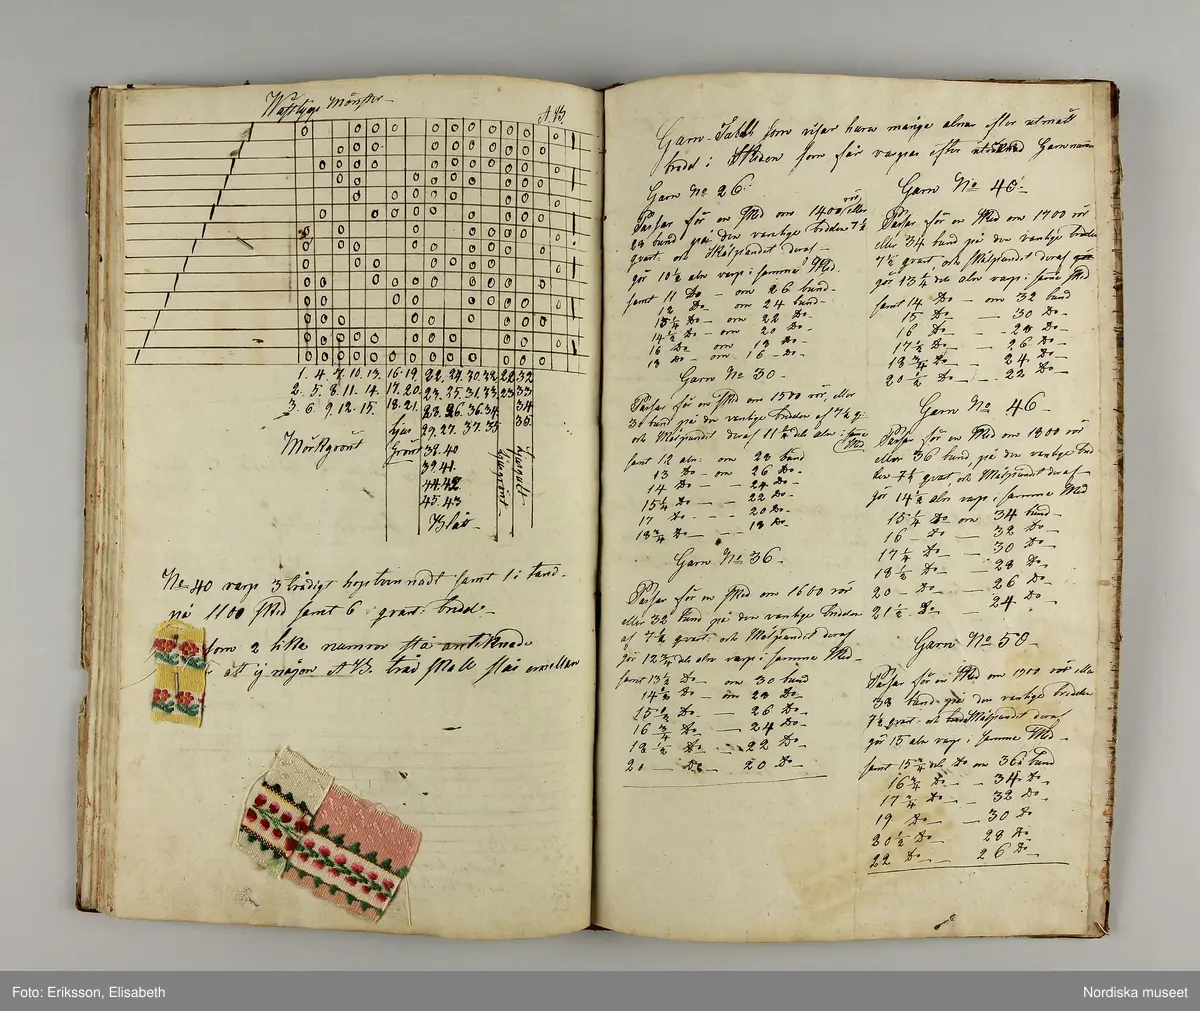 Mönster
A B.
1. 4. 7. 10. 13. 16. 19. 22. 24. 30. 32. 22 32
2. 5. 8. 11. 14. 17. 20. 23. 25. 31. 33. 23 33
3. 6. 9. 12. 15. 18. 21. 23. 26. 36. 34. 34
29. 27. 37. 35 35.
Mörkgrönt
ljus
Grönt
38. 40
39. 41.
44. 42
45. 43
Blått
No 40 varp 3 trådigt samt 1 i tand
på 1100 Sked samt 6 qvart. bredd
som 2 lika numror stå antecknade
att ij någon A B. tråd skall slås emellan
Garn-Tabell som visar huru många alnar efter utmätt
bredd i Skeden som får varpas efter Garnnumm
Garn No 26:
Passar för en Sked om 1400 rör, eller
28 bund på den vanlige bredden 7½
qvart. och Skålpundet deraf
gör 10½ aln varp i samma Sked.
samt 11 Do — om 26 bund
12 Do — om 24 bund
13¼ Do — om 22 Do
14½ Do — om 20 Do
16 Do om 18 Do
18 Do — om 16 — Do
Garn No 30
Passar för en Sked om 1500 rör, eller
30 bund på den vanlige bredden af 7½ q:
och Skålpundet deraf 11¼ dels alnr i samma
Sked
samt 12 aln: om 28 bund
13 Do — om 26 Do
14 Do — — 24 Do
15¼ Do — — 22 Do
17 Do — — 20 Do
18¾ Do — — 18 Do
Garn No 36
Passar för en Sked om 1600 rör
eller 32 bund på den vanlige bredden
af 7½ qvart. och Skålpundet deraf
gör 12¾ dels aln varp i samma Sked
samt 13½ Do — om 30 bund
14½ Do — om 28 Do
15½ Do — 26 Do
16¾ Do — 24 Do
18½ Do — 22 Do
20 — Do — 20 Do
Garn No 40
Passar för en Sked om 1700 rör
eller 34 bund på den vanlige bredden
7½ qvart och Skålpundet deraf
gör 13¼ dels aln varp i samma Sked
samt 14 Do — om 32 bund
15 Do — 30 Do
16 Do — 28 Do
17½ Do — 26 Do
18¾ Do — 24 Do
20½ Do — 22 Do
Garn No 46
Passar för en Sked om 1800 rör
eller 36 bund, på den vanlige bred
den 7½ qvart och Skålpundet deraf
gör 14½ aln varp i samma Sked
15¼ Do om 34 bund
16 — Do — 32 Do
17¼ Do — 30 Do
18½ Do — 28 Do
20 — Do — 26 Do
21½ Do 24 Do
Garn No 50
Passar för en Sked om 1900 rör eller
38 bund på den vanlige bredden
7½ qvart. och Skålpundet deraf
gör 15 aln varp i samma Sked
samt 15¾ dels Do om 36 bund
16¾ Do — 34 Do
17¾ Do — 32 Do
19 Do — 30 Do
20½ Do 28 Do
22 Do — 26 Do
Foto: Eriksson, Elisabeth
Nordiska museet